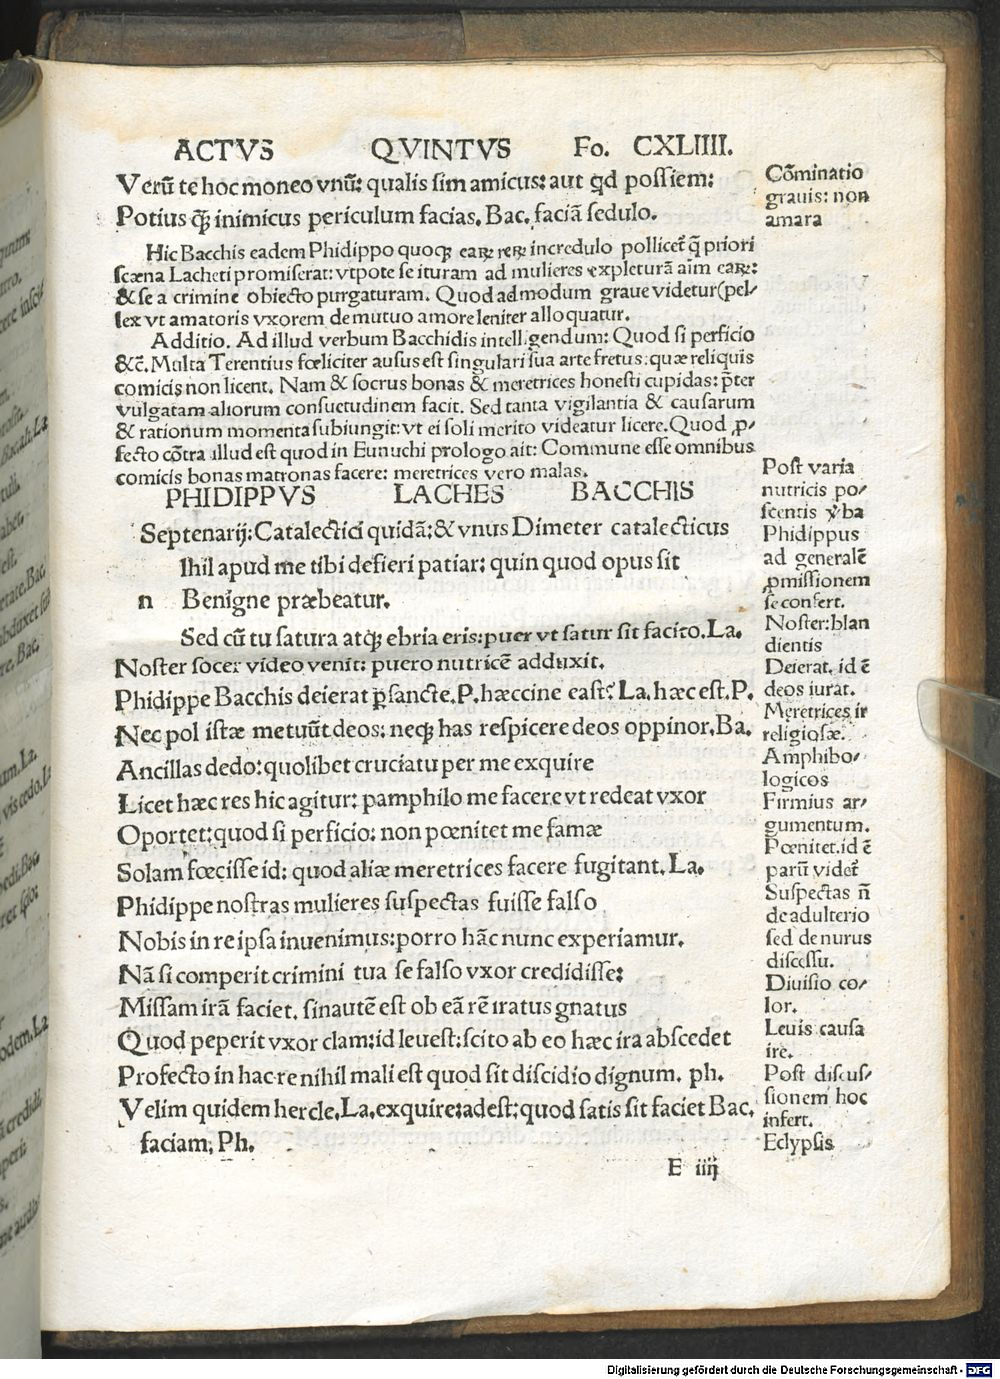 ACTVS QVINTVS Fo. CXLIIII.
Verũ te hoc moneo vnũ: qualis sim amicus: aut qd possiem:
Potius q̃ꝫ inimicus periculum facias. Bac. faciã sedulo.
Cõminatio
grauis: non
amara
Hic Bacchis eadem Phidippo quoqꝫ eaꝝ reꝝ incredulo pollicet᷑ q̃ priori
scæna Lacheti promiserat: vtpote se ituram ad mulieres expleturã aĩm eaꝝ:
& se a crimine obiecto purgaturam. Quod admodum graue videtur (pel⸗
lex vt amatoris vxorem de mutuo amore leniter alloquatur.
Additio. Ad illud verbum Bacchidis intelligendum: Quod si perficio
&c̃. Multa Terentius fœliciter ausus est singulari sua arte fretus: quæ reliquis
comicis non licent. Nam & socrus bonas & meretrices honesti cupidas: p̃ter
vulgatam aliorum consuetudinem facit. Sed tanta vigilantia & causarum
& rationum momenta subiungit: vt ei soli merito videatur licere. Quod ꝓ⸗
fecto cõtra illud est quod in Eunuchi prologo ait: Commune esse omnibus
comicis bonas matronas facere: meretrices vero malas.
PHIDIPPVS LACHES BACCHIS
Septenarij: Catalectici quidã: & vnus Dimeter catalecticus
Ihil apud me tibi defieri patiar: quin quod opus sit
n Benigne præbeatur.
Sed cũ tu satura atqꝫ ebria eris: puer vt satur sit facito. La.
Noster socer video venit: puero nutricẽ adduxit.
Phidippe Bacchis deierat ꝑsancte. P. hæccine east? La. hæc est. P.
Nec pol istæ metuũt deos: neqꝫ has respicere deos oppinor. Ba.
Ancillas dedo: quolibet cruciatu per me exquire
Licet hæc res hic agitur: pamphilo me facere vt redeat vxor
Oportet: quod si perficio: non pœnitet me famæ
Solam fœcisse id: quod aliæ meretrices facere fugitant. La.
Phidippe nostras mulieres suspectas fuisse falso
Nobis in re ipsa inuenimus: porro hãc nunc experiamur.
Nã si comperit crimini tua se falso vxor credidisse:
Missam irã faciet. sin autẽ est ob eã rẽ iratus gnatus
Quod peperit vxor clam: id leuest: scito ab eo hæc ira abscedet
Profecto in hac re nihil mali est quod sit discidio dignum. ph.
Velim quidem hercle. La. exquire: adest: quod satis sit faciet Bac.
faciam. Ph.
Post varia
nutricis po⸗
scentis v̾ba
Phidippus
ad generalẽ
ꝓmissionem
se confert.
Noster: blan
dientis
Deierat. id ẽ
deos iurat.
Meretrices ir
religiosæ.
Amphibo⸗
logicos
Firmius ar⸗
gumentum.
Pœnitet. id ẽ
parũ videt᷑
Suspectas ñ
de adulterio
sed de nurus
discessu.
Diuisio co⸗
lor.
Leuis causa
iræ.
Post discus⸗
sionem hoc
infert.
Eclypsis
E iiij
Digitalisierung gefördert durch die Deutsche Forschungsgemeinschaft - DFG